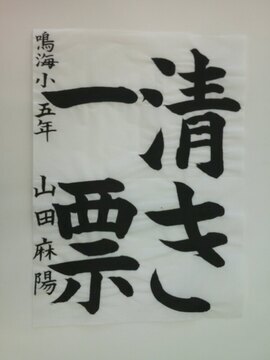 清き
一票
鳴海小五年 山田麻陽